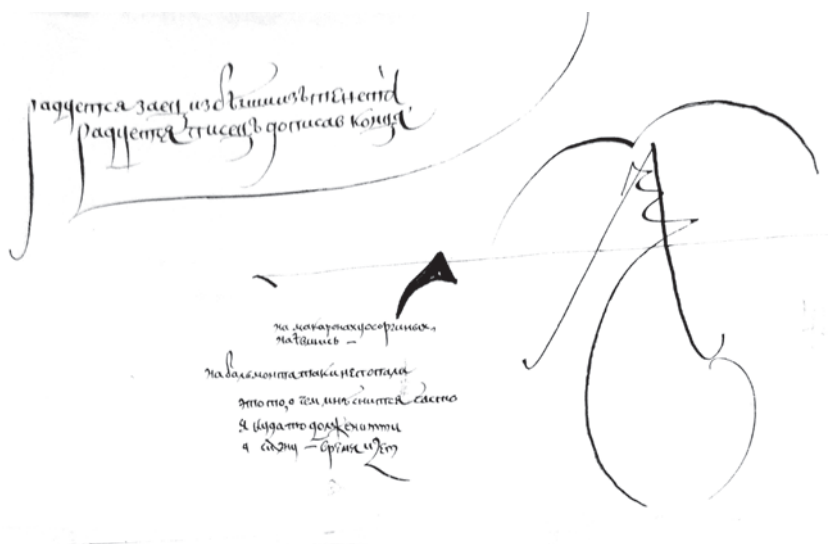 радуется заец избѣгшиизътенета
радуется писецъ дописавъ конца
на макаронахуосоргиныхъ
наѣвшись —
на бальмонта таки не попала
это то, о чем мнѣ снится часто
я куда то должен итти
а сижу — время идет